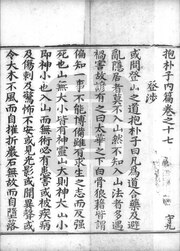 抱朴子內篇卷之十七
登涉
或問登山之道抱朴子曰凡爲道合藥及避
亂隱居者莫不入山然不知入山法者多遇
禍害故諺有之曰太華之下白骨狼藉皆謂
偏知一事不能博備雖有求生之志而反强
死也山無大小皆有神靈山大則神大山小
即神小也入山而無術必有患害或被疾病
及傷刺及驚怖不安或見光影或聞異聲或
令大木不風而自摧折巖石無故而自墮落